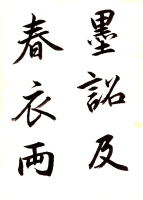 墨詔及
春衣両